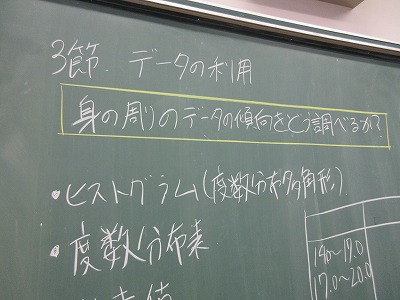 3節. データの利用
身の周りのデータの傾向をどう調べるか?
・ヒストグラム(度数分布多角形)
・度数分布表
17.0~20.0